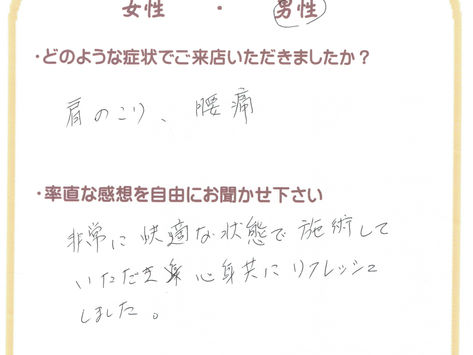 女性 ・ 男性
・どのような症状でご来店いただきましたか？
肩のこり、腰痛
・率直な感想を自由にお聞かせ下さい
非常に快適な状態で施術して
いただき心身共にリフレッシュ
しました。